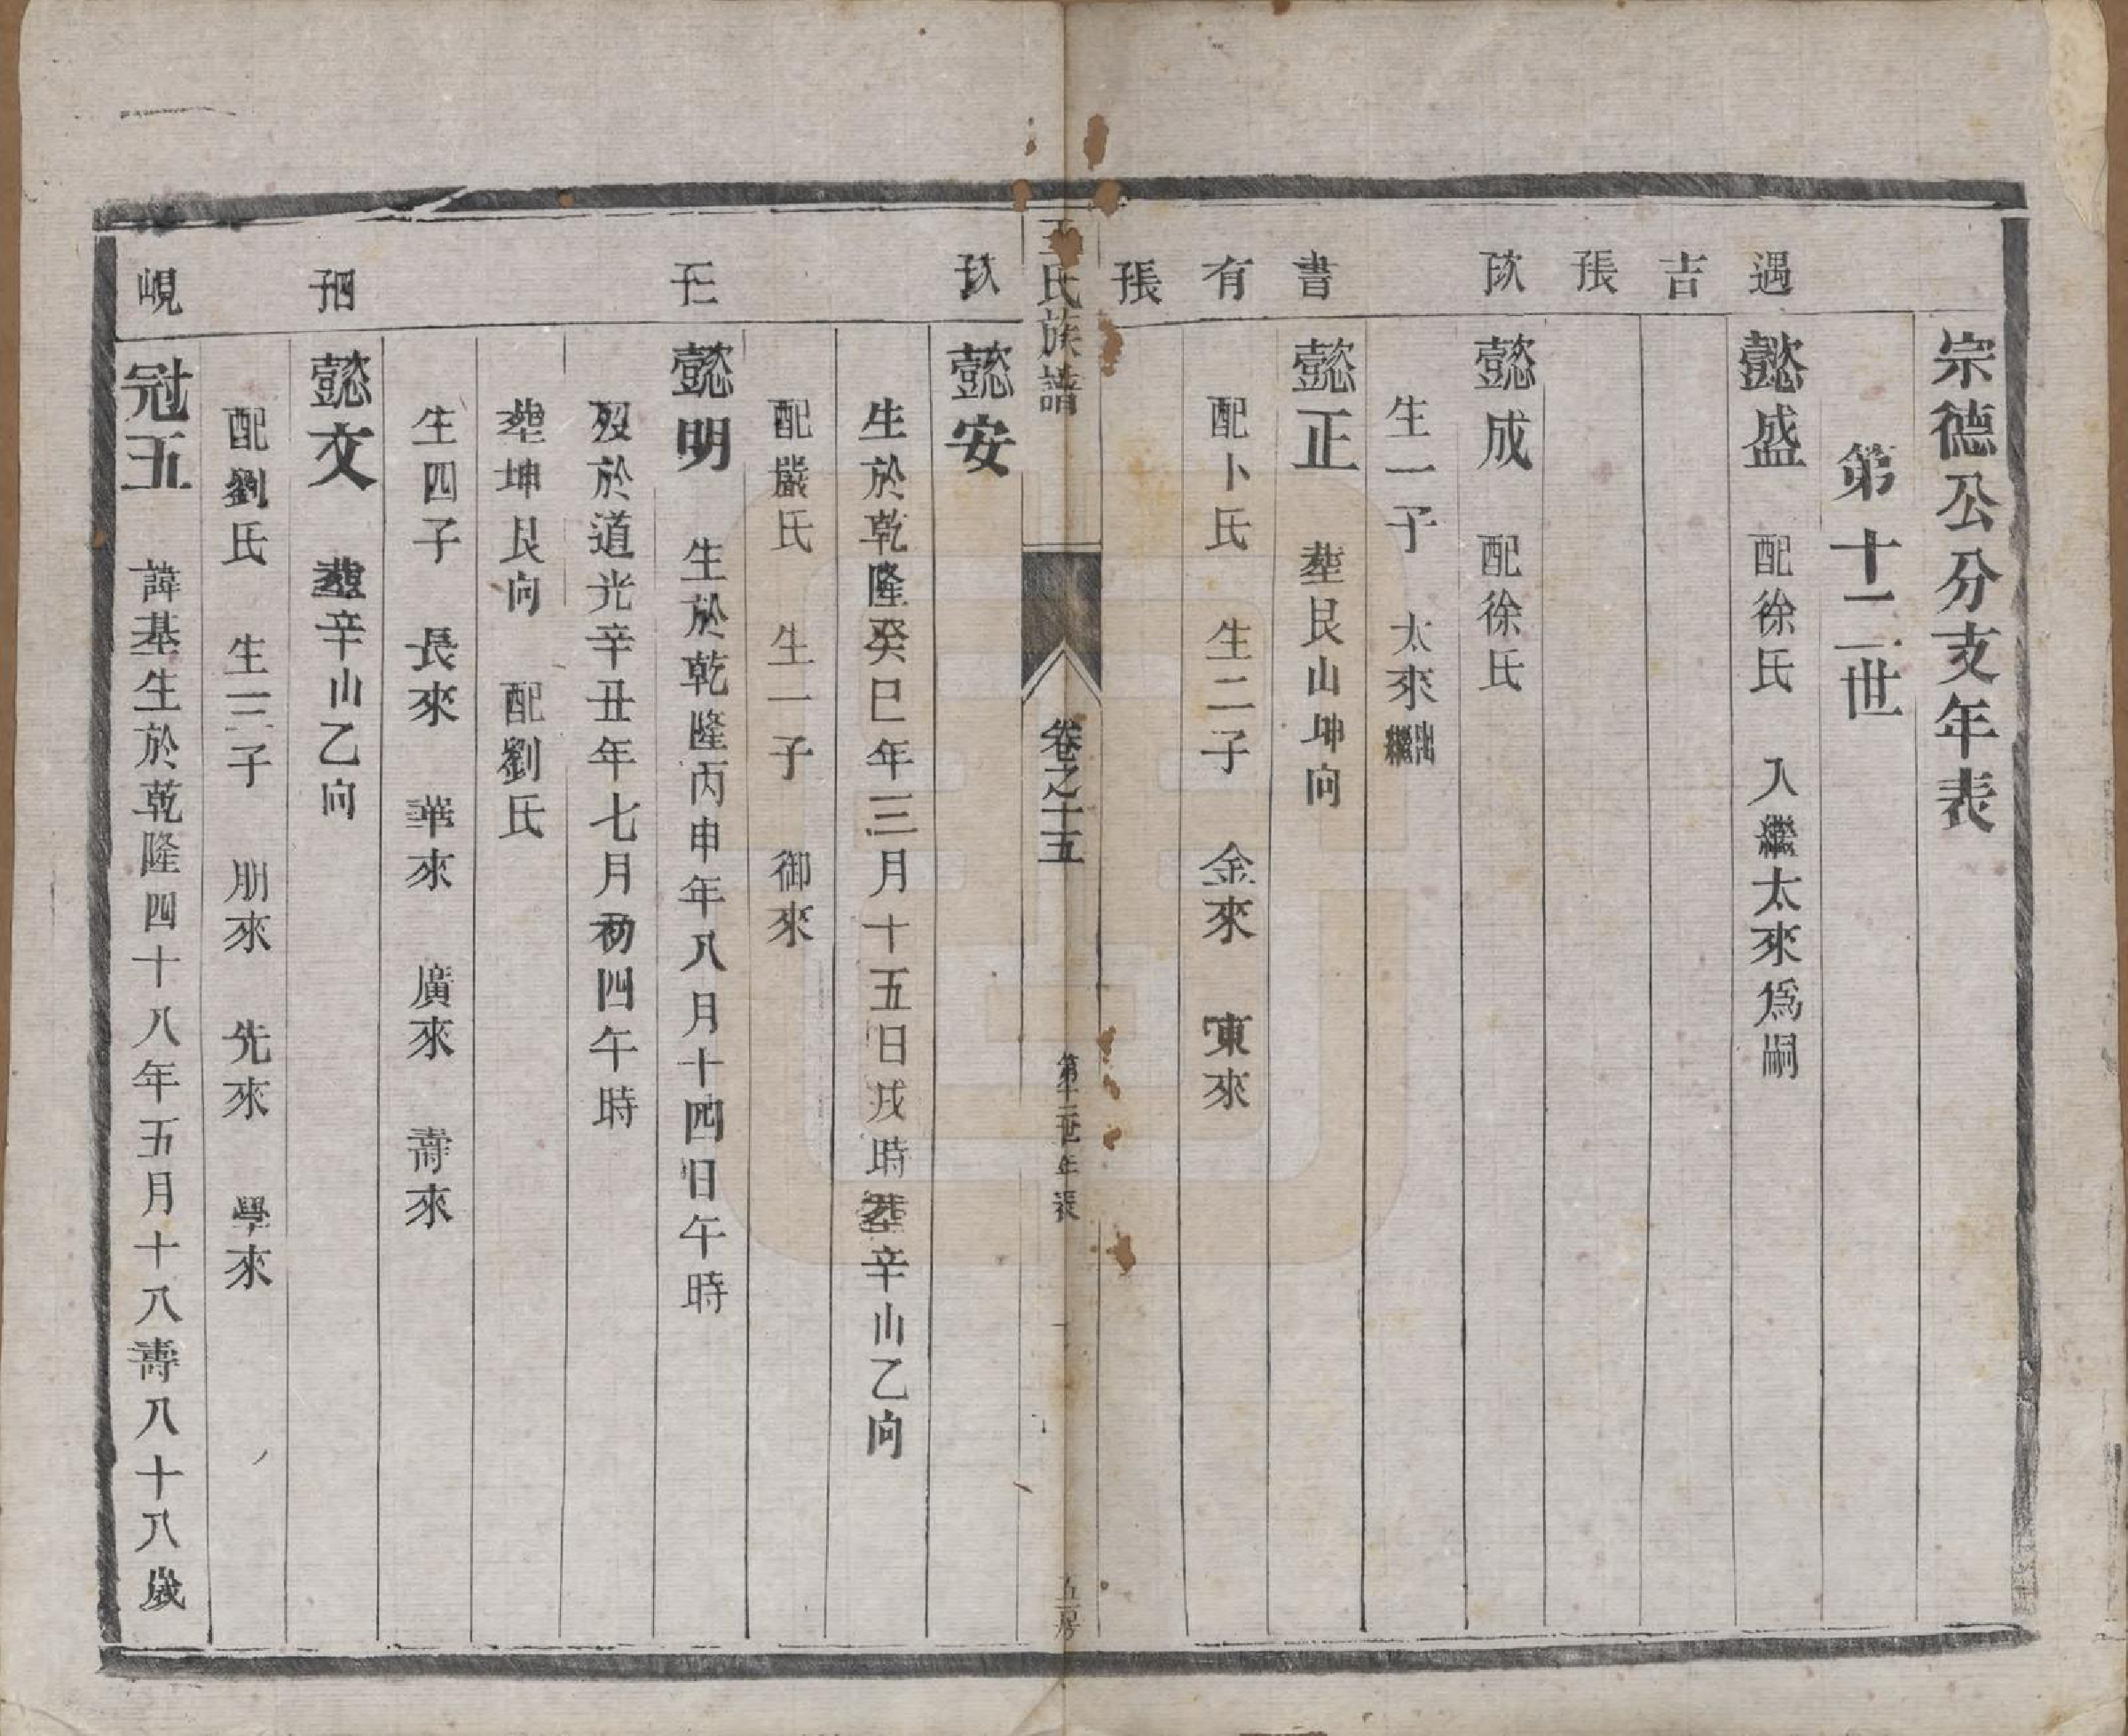 宗德公分支年表
第十二世
遇 吉 張
懿盛 配徐氏 入繼太來爲嗣
懿成 配徐氏
生一子 太來出繼
書 有 張
懿正 塟艮山坤向
配卜氏 生二子 金來 東來
王氏族譜 卷之十五 第十二世年表 五房
懿安
生於乾隆癸巳年三月十五日戌時塟辛山乙向
配嚴氏 生一子 御來
懿明 生於乾隆丙申年八月十四日午時
歿於道光辛丑年七月初四午時
塟坤艮向 配劉氏
生四子 長來 華來 廣來 壽來
懿文 塟辛山乙向
配劉氏 生三子 朋來 先來 學來
峴
冠五 諱基生於乾隆四十八年五月十八壽八十八歲